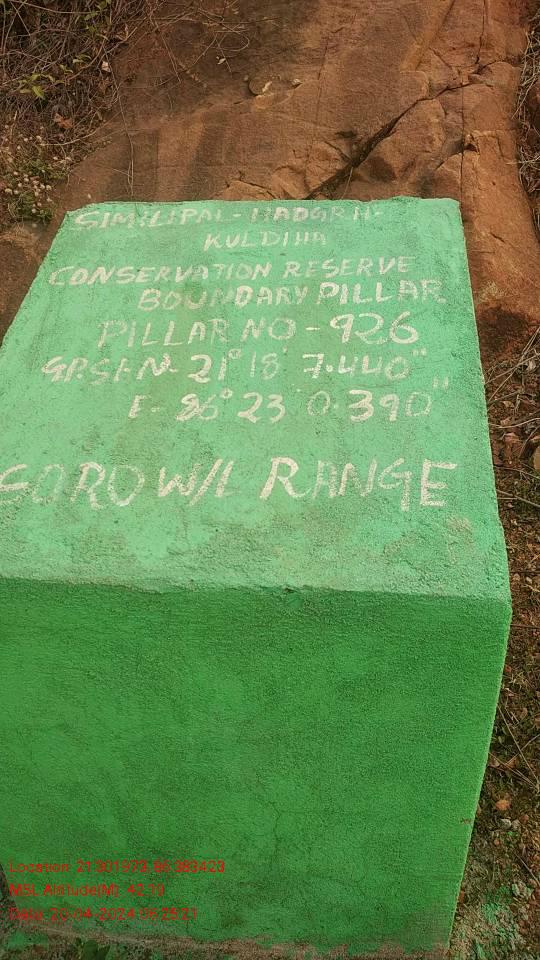 SIMILIPAL - HADGRH-
KULDIHA
CONSERVATION RESERVE
BOUNDARY PILLAR
PILLAR NO - 926
21° 18' 7.440"
E- 86° 23' 0.390"
SORO W/L RANGE
Location: 21.301973, 86.383423
MSL Altitude(M): 42.19
Date: 20-04-2024